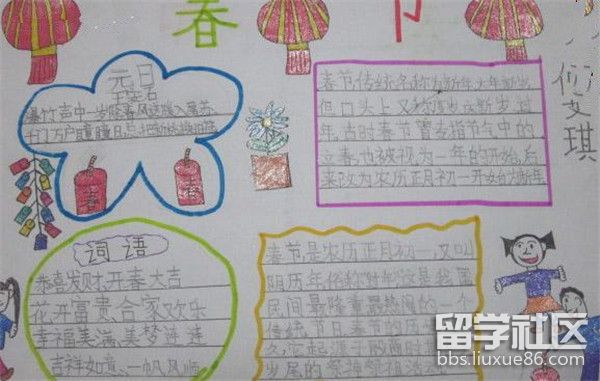 春节
元日
王安石
爆竹声中一岁除春风送暖入屠苏
千门万户曈曈日总把新桃换旧符
春节传统名称为新年、大年、新岁
但口头上又称度岁、庆新岁、过
年,古时春节曾专指节气中的
立春,也被视为一年的开始,后
来改为农历正月初一开始
词语
恭喜发财、开春大吉
花开富贵、合家欢乐
幸福美满、美梦
吉祥如意、一帆风顺
春节是农历正月初一,又叫
阴历年,俗称
民间最隆重最热闹的一个
传统节日春节的历
琪
留学社区
bbs.liuxue86.com